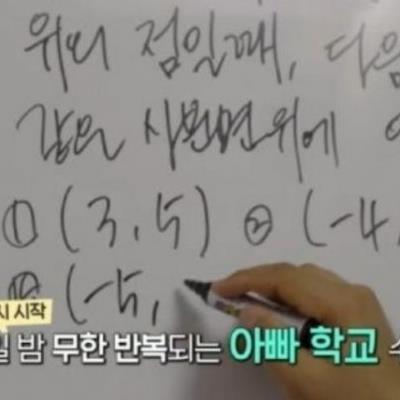 위의 점일때, 다음
같은 사분면위에
① (3, 5) ② (-4,
(-5,
시 시작
일 밤 무한 반복되는 아빠 학교 수